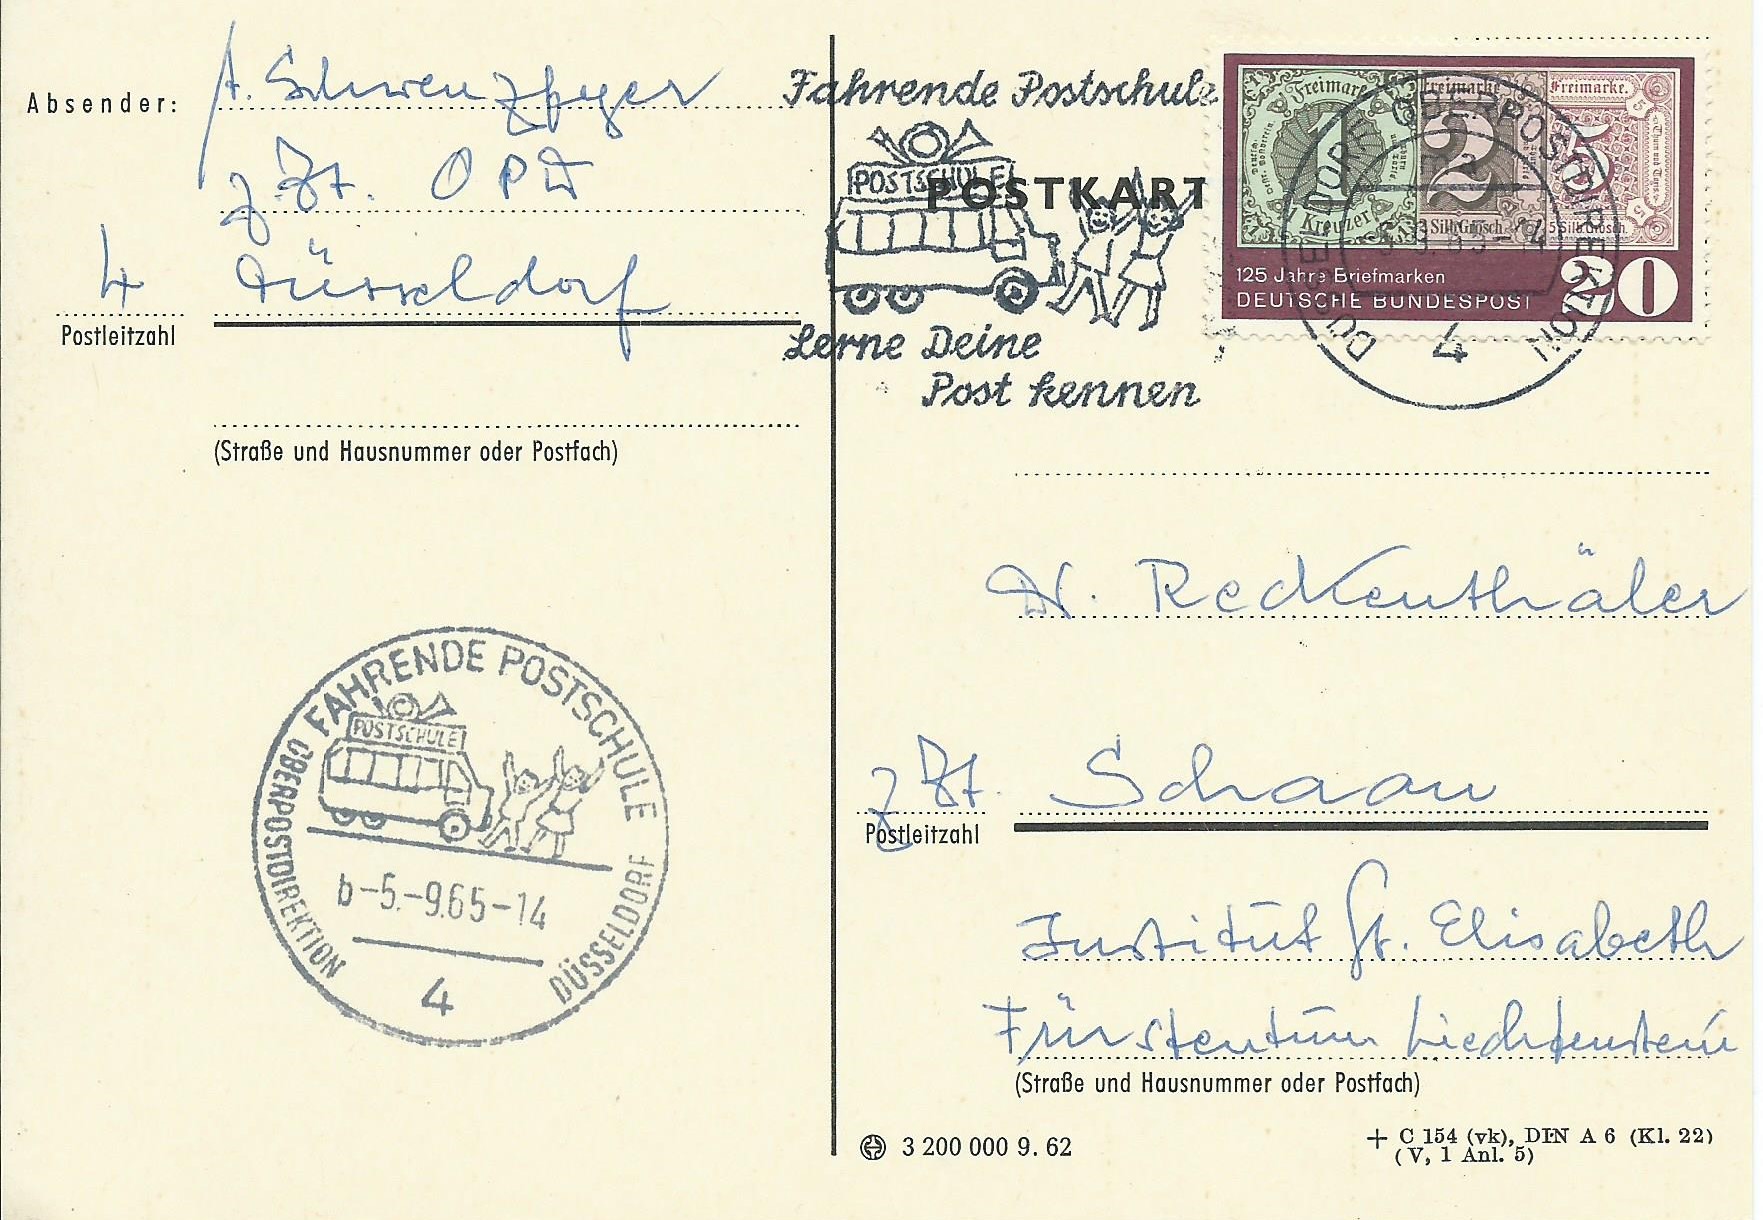 Absender:
A. Schwenzfeger
z. Zt. OPD
4 Düsseldorf
Postleitzahl
(Straße und Hausnummer oder Postfach)
FAHRENDE POSTSCHULE
POSTSCHULE
b-5.-9.65-14
4
OBERPOSTDIREKTION DÜSSELDORF
Fahrende Postschule
POSTSCHULE
POSTKART
Lerne Deine
Post kennen
Freimarke
1
1 Kreuzer
Freimarke
2
2 Silb. Grosch.
Freimarke.
5
5 Silb. Grosch.
125 Jahre Briefmarken
DEUTSCHE BUNDESPOST
20
DÜSSELDORF OBERPOSTDIREKTION
4
Dr. Reckenthäler
z Zt. Schaan
Postleitzahl
Institut St. Elisabeth
Fürstentum Liechtenstein
(Straße und Hausnummer oder Postfach)
3 200 000 9. 62
+ C 154 (vk), DIN A 6 (Kl. 22)
(V, 1 Anl. 5)